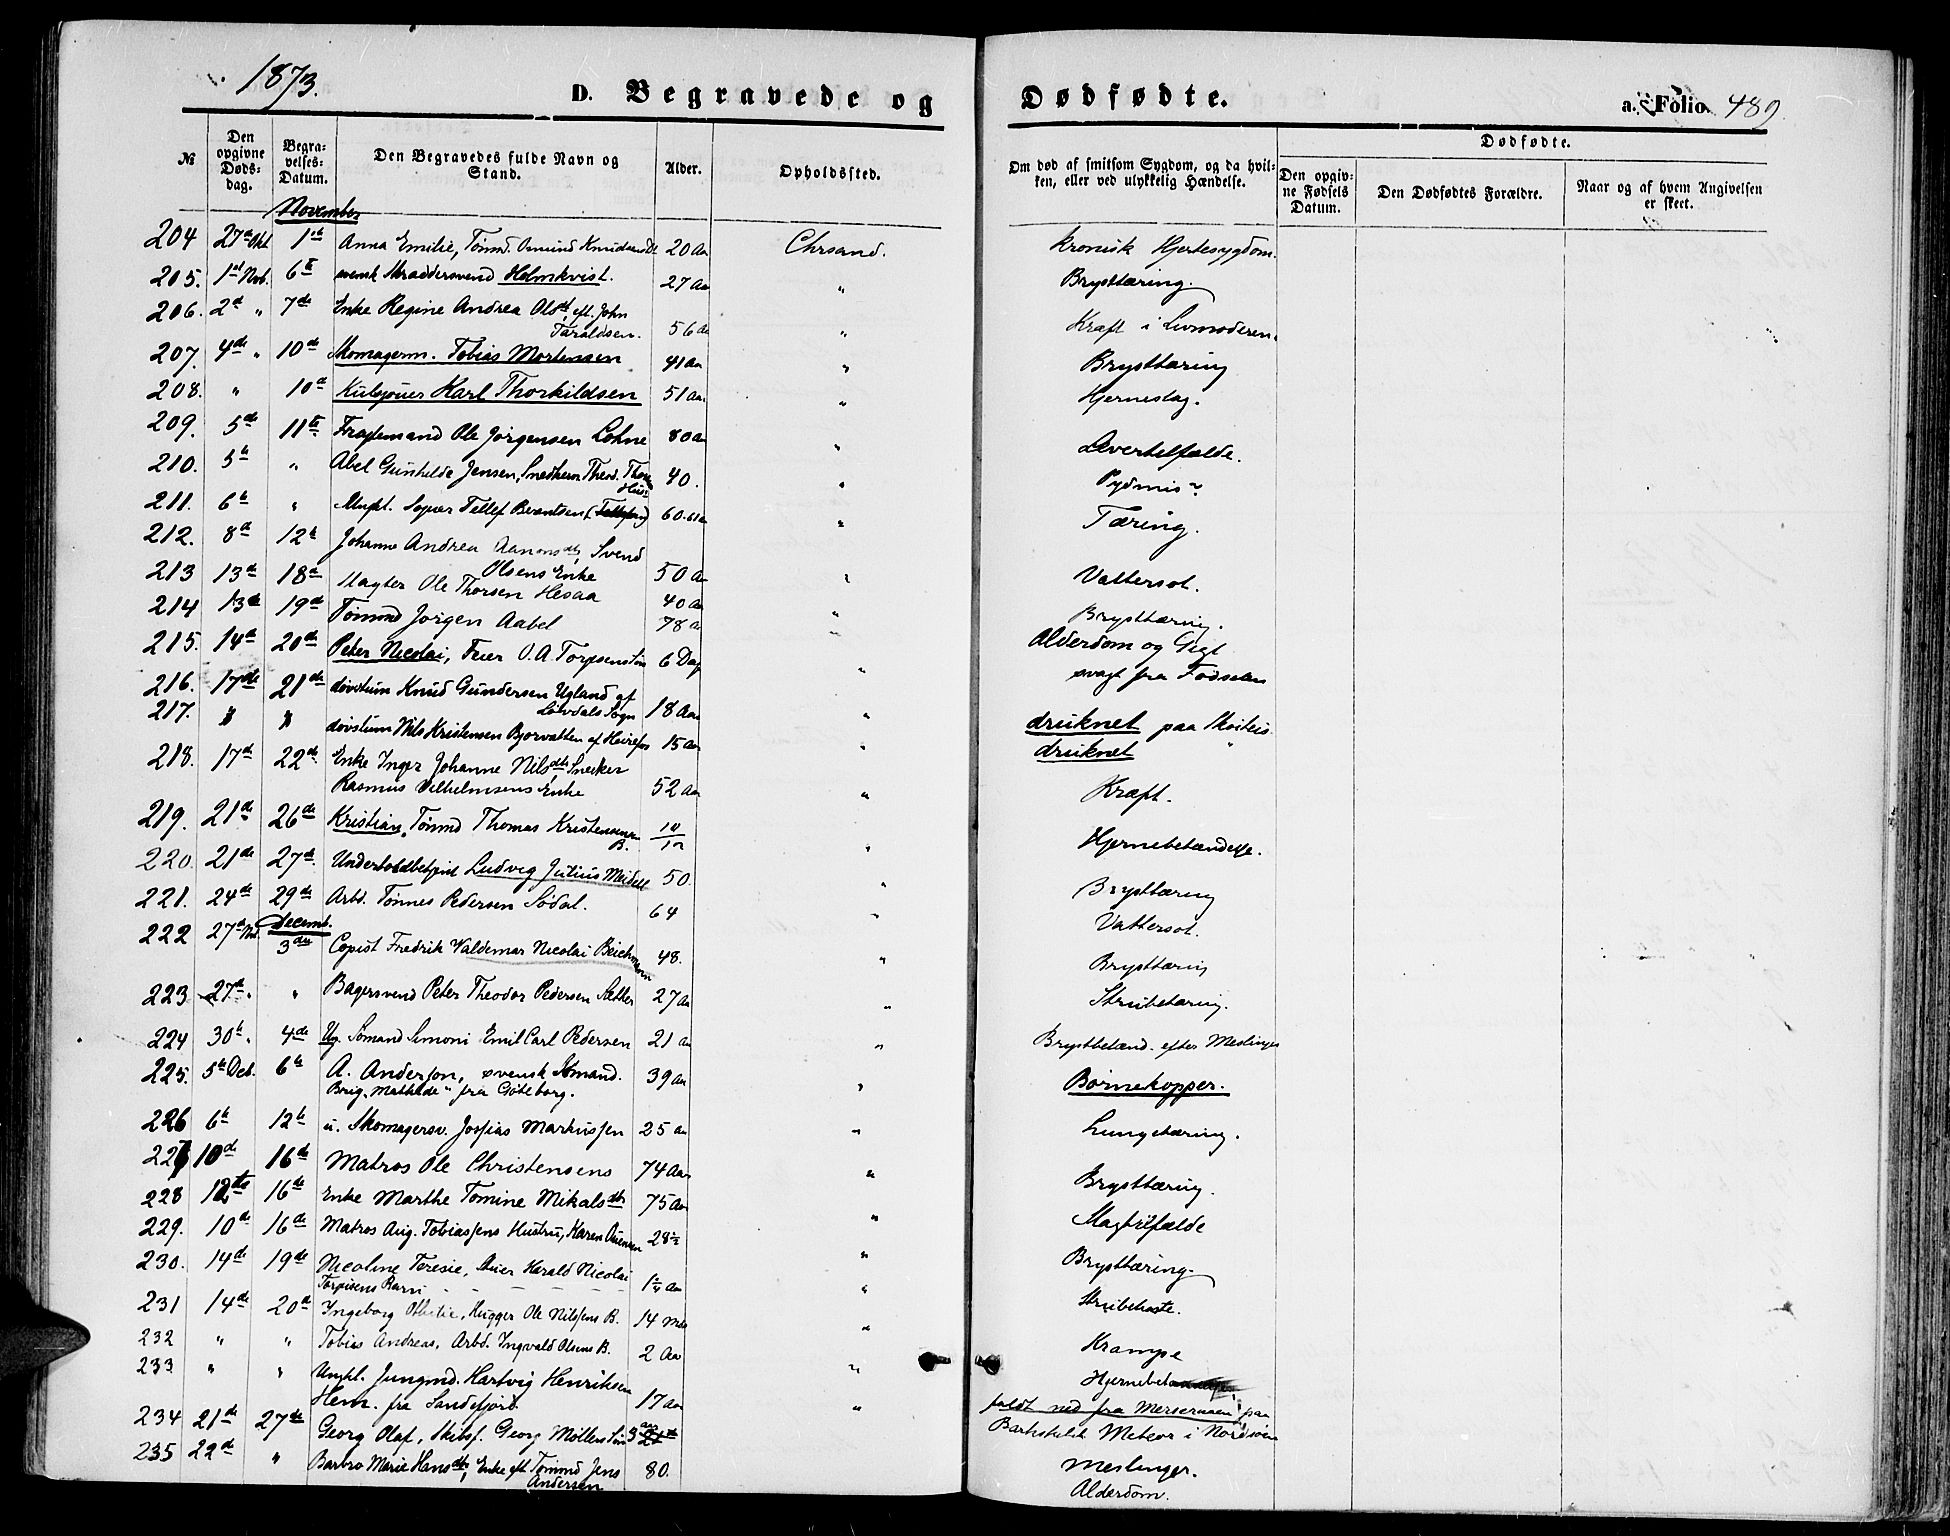 1873.
D. Begravede og Dødfødte.
a. Folio 489.
№
Den opgivne Dødsdag.
Begravelses-Datum.
Den Begravedes fulde Navn og Stand.
Alder.
Opholdssted.
Om død af smitsom Sygdom, og da hvilken, eller ved ulykkelig Hændelse.
Dødfødte.
Den opgivne Fødsels Datum.
Den Dødfødtes Forældre.
Naar og af hvem Angivelsen er skeet.
November
204 27de Okt 1ste Anna Emilie, Tømmd. Osmund Knudsens 20 Aar Chrsand. Kronisk Hjertesygdom.
205. 1st Nov. 6te svensk Skræddersvend Holmkvist. 27 Aar " Brysttæring.
206. 2d " 7de Enke Regine Andrea Olsdt, eft. John
Taraldsen. 56 Aar " Kræft i Livmoderen.
207. 4de " 10de Skomagerm. Tobias Mortensen 41 Aar " Brysttæring
208. " 10d Karl Thorkildsen 51 Aar " Hjerneslag.
209. 5de 11te Fragtemand Ole Jørgensen Lohne 80 Aar " Levertilfælde.
210. 5te " Abel Gunhilde Jensen, Snedkerm Theod. 40. "
211. 6te " Tellef Berentsen (Tellefsen) 60-61 Aar " Tæring.
212. 8de 12te Johanne Andrea Aanonsdtr, Svend
Olsens Enke 50 Aar " Vattersot.
213 13de 18de Vægter Ole Thorsen Hesaa 40 Aar " Brysttæring.
214 13de 19de Tømmd Jørgen Aabel 78 Aar " Alderdom og Gigt
215. 14de 20de Peter Nicolai, Feier O. A. Torjesens Søn 6 Dage " svagt fra Fødselen
216. 17de 21de døvstum Knud Gundersen Ugland af
Sogn 18 Aar " druknet paa Skøiteis
217. " " døvstum Nils Kristensen Bjorvatten af Heirefos 15 Aar " druknet "
218. 17de 22de Enke Inger Johanne Nilsdtr Snedker
Rasmus Vilhelmsens Enke 52 Aar " Kræft.
219. 21de 26de Kristian, Tømmd Thomas Kristensens
B. 10/12 " Hjernebetændelse.
220. 21de 27de Ludvig Julius Meidell 50. " Brysttæring
221. 24de 29de Arbd. Tønnes Pedersen Sødal. 64 " Vattersot.
Decemb.
222 27de Nov. 3die Copist Fredrik Valdemar Nicolai Beichmann 48. " Brysttæring
223 27de " " Bagersvend Peter Theodor Pedersen Sætter 27 Aar " Strubetæring.
224 30te " 4de Ug. Sømand Simoni Emil Carl Pedersen 21 Aar " Brystbetænd. efter Meslinger
225. 5te Dec. 6te A. Anderson, svensk Sømand.
Brig „Mathilde" fra Gøteborg. 39 Aar " Børnekopper.
226 6te 12te u. Skomagersv. Josias Markussen 25 Aar " Lungetæring.
227 10de 16de Matros Ole Christensens 74 Aar " Brysttæring.
228 12te 16de Enke Marthe Tomine Mikalsdtr 75 Aar " Mavetilfælde
229. 10de 16de Matros Aug. Tobiassens Hustru, Karen 28½ " Brysttæring.
230. 14de 19de Nicoline Teresie, Harald Nicolai
Torjesens Barn 1¼ Aar " Strubehoste.
231 14de 20de Ingeborg Othilie, Hugger Ole Nilssens B. 14 Mdr " Krampe
232 " " Tobias Andreas, Arbd. Ingvald Olsens B. 2 Aar " Hjernebetændelse.
233 " " Ungkl. Jungmd. Hartvig Henriksen
Hem. fra Sandefjord. 17 Aar " faldt ned fra Mersraaen paa
Barkskibet Meteor i Nordsøen
234 21de 27de Georg Olaf, Skibsf. Georg Møllers Søn 3 Aar Meslinger.
235 22de " Barbro Marie Hansdtr, Enke eft. Tømmd Jens
Andersen 80. Alderdom.